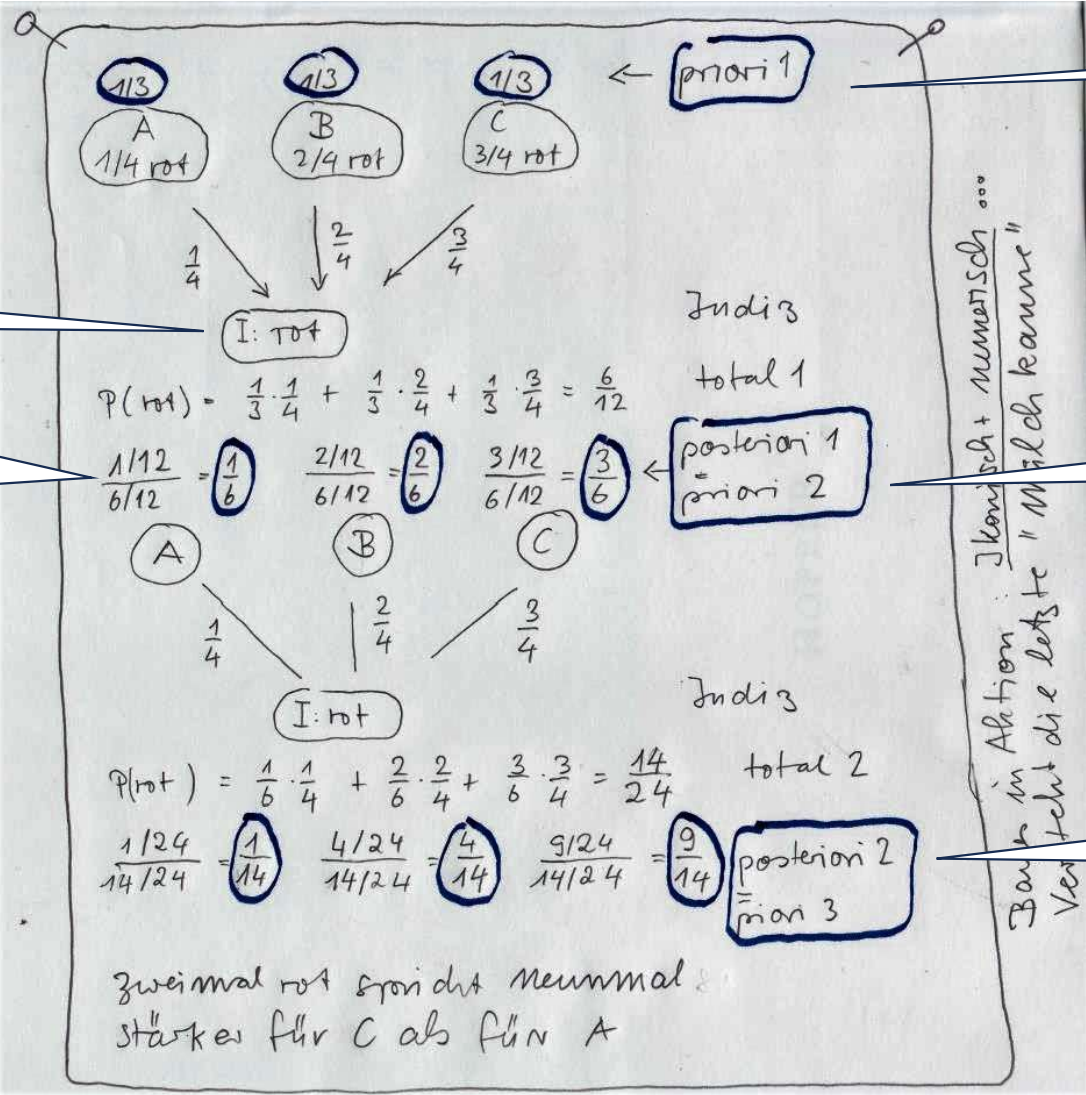 1/3 1/3 1/3 ← priori 1
A B C
1/4 rot 2/4 rot 3/4 rot
1/4 2/4 3/4
I: rot Indiz
total 1
P(rot) = 1/3 · 1/4 + 1/3 · 2/4 + 1/3 · 3/4 = 6/12
1/12 / 6/12 = 1/6 2/12 / 6/12 = 2/6 3/12 / 6/12 = 3/6 ← posteriori 1
= priori 2
A B C
1/4 2/4 3/4
I: rot Indiz
total 2
P(rot) = 1/6 · 1/4 + 2/6 · 2/4 + 3/6 · 3/4 = 14/24
1/24 / 14/24 = 1/14 4/24 / 14/24 = 4/14 9/24 / 14/24 = 9/14 posteriori 2
= priori 3
zweimal rot spricht neunmal
stärker für C als für A
in Aktion: Ikonisch + numerisch ...
die letzte "Milchkanne"